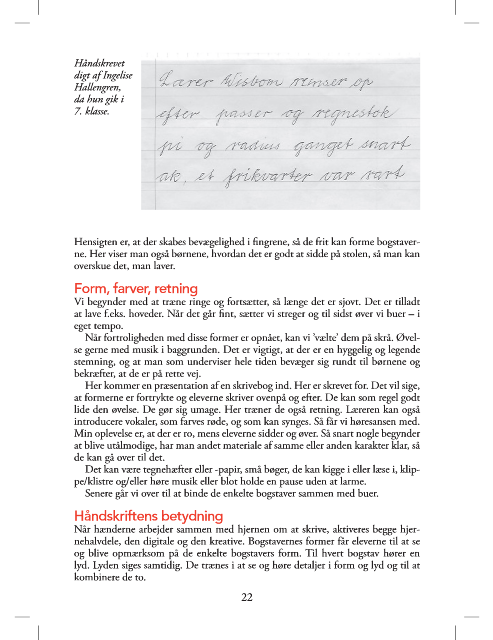 Håndskrevet
digt af Ingelise
Hallengren,
da hun gik i
7. klasse.
Lærer Wisbom renser op
efter passer og regnestok
pi og radius ganget snart
ak, et frikvarter var rart
Hensigten er, at der skabes bevægelighed i fingrene, så de frit kan forme bogstaver-
ne. Her viser man også børnene, hvordan det er godt at sidde på stolen, så man kan
overskue det, man laver.
Form, farver, retning
Vi begynder med at træne ringe og fortsætter, så længe det er sjovt. Det er tilladt
at lave f.eks. hoveder. Når det går fint, sætter vi streger og til sidst øver vi buer – i
eget tempo.
Når fortroligheden med disse former er opnået, kan vi ’vælte’ dem på skrå. Øvel-
se gerne med musik i baggrunden. Det er vigtigt, at der er en hyggelig og legende
stemning, og at man som underviser hele tiden bevæger sig rundt til børnene og
bekræfter, at de er på rette vej.
Her kommer en præsentation af en skrivebog ind. Her er skrevet for. Det vil sige,
at formerne er fortrykte og eleverne skriver ovenpå og efter. De kan som regel godt
lide den øvelse. De gør sig umage. Her træner de også retning. Læreren kan også
introducere vokaler, som farves røde, og som kan synges. Så får vi høresansen med.
Min oplevelse er, at der er ro, mens eleverne sidder og øver. Så snart nogle begynder
at blive utålmodige, har man andet materiale af samme eller anden karakter klar, så
de kan gå over til det.
Det kan være tegnehæfter eller -papir, små bøger, de kan kigge i eller læse i, klip-
pe/klistre og/eller høre musik eller blot holde en pause uden at larme.
Senere går vi over til at binde de enkelte bogstaver sammen med buer.
Håndskriftens betydning
Når hænderne arbejder sammen med hjernen om at skrive, aktiveres begge hjer-
nehalvdele, den digitale og den kreative. Bogstavernes former får eleverne til at se
og blive opmærksom på de enkelte bogstavers form. Til hvert bogstav hører en
lyd. Lyden siges samtidig. De trænes i at se og høre detaljer i form og lyd og til at
kombinere de to.
22